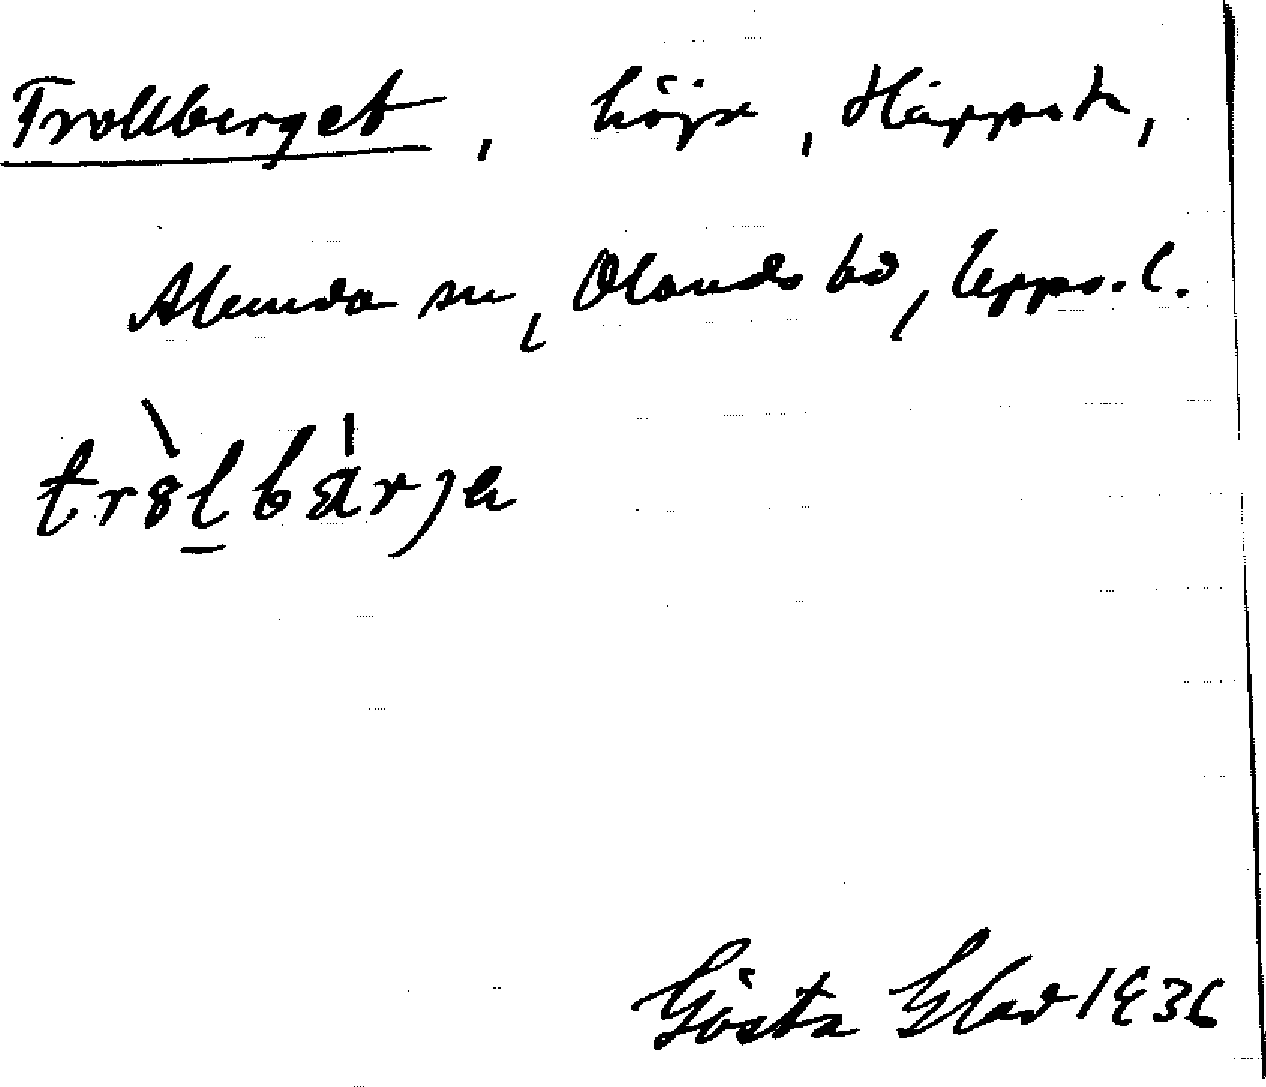 Trollberget, höjd, Häppsta,
Alunda sn, Olands hd, Upps. l.
tròlbárje
Gösta Glad 1936